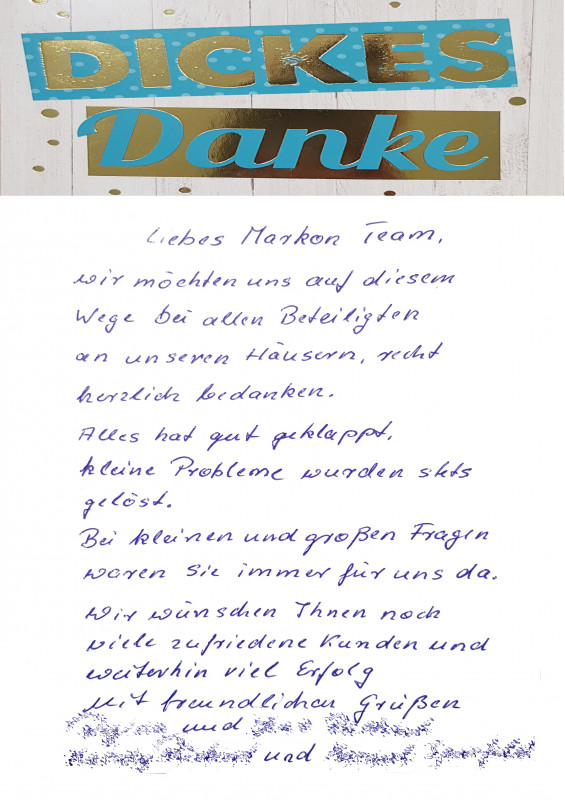 DICKES
Danke
Liebes Markon Team,
wir möchten uns auf diesem
Wege bei allen Beteiligten
an unseren Häusern, recht
herzlich bedanken.
Alles hat gut geklappt,
kleine Probleme wurden stets
gelöst.
Bei kleinen und großen Fragen
waren Sie immer für uns da.
Wir wünschen Ihnen noch
viele zufriedene Kunden und
weiterhin viel Erfolg
Mit freundlichen Grüßen
und
und